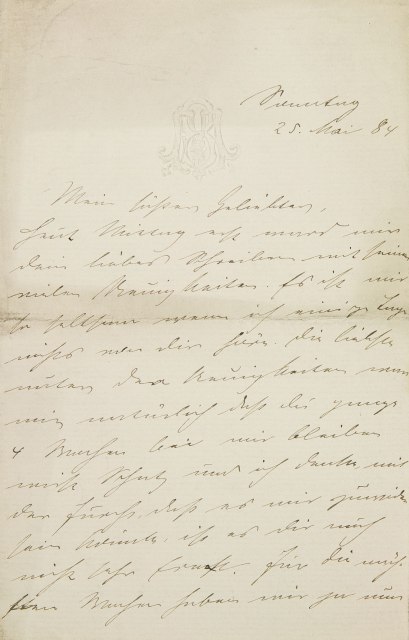 Sonntag
25. Mai 84
Mein süßer Geliebter,
Heut Mittag erst ward mir
dein liebes Schreiben mit seinen
vielen Neuigkeiten. Es ist mir
so seltsam wenn ich einige Tage
nichts von dir höre. Die liebste
unter den Neuigkeiten war
mir natürlich daß du ganze
4 Wochen bei mir bleiben
willst Schatz und ich denke mir
der daß es mir zuwider
sein könnte, ist es dir auch
nicht sehr Ernst. Für die
Wochen haben wir ja nun